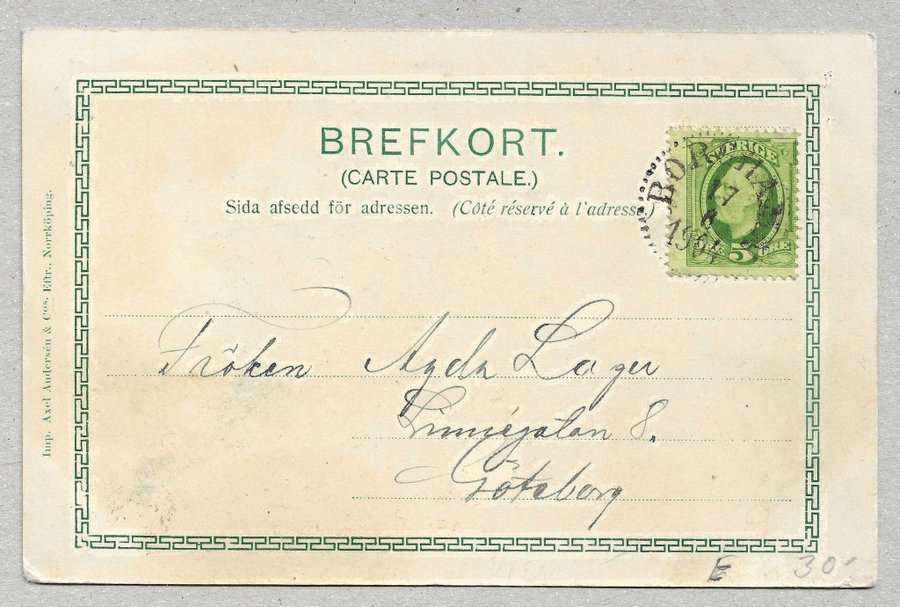 BREFKORT.
(CARTE POSTALE.)
Sida afsedd för adressen. (Côté réservé à l'adresse.)
SVERIGE
5 ÖRE
17
1904
Fröken Agda Lager
Linnégatan 8.
Göteborg
Imp. Axel Andersén & Cos. Eftr., Norrköping.
E 30-